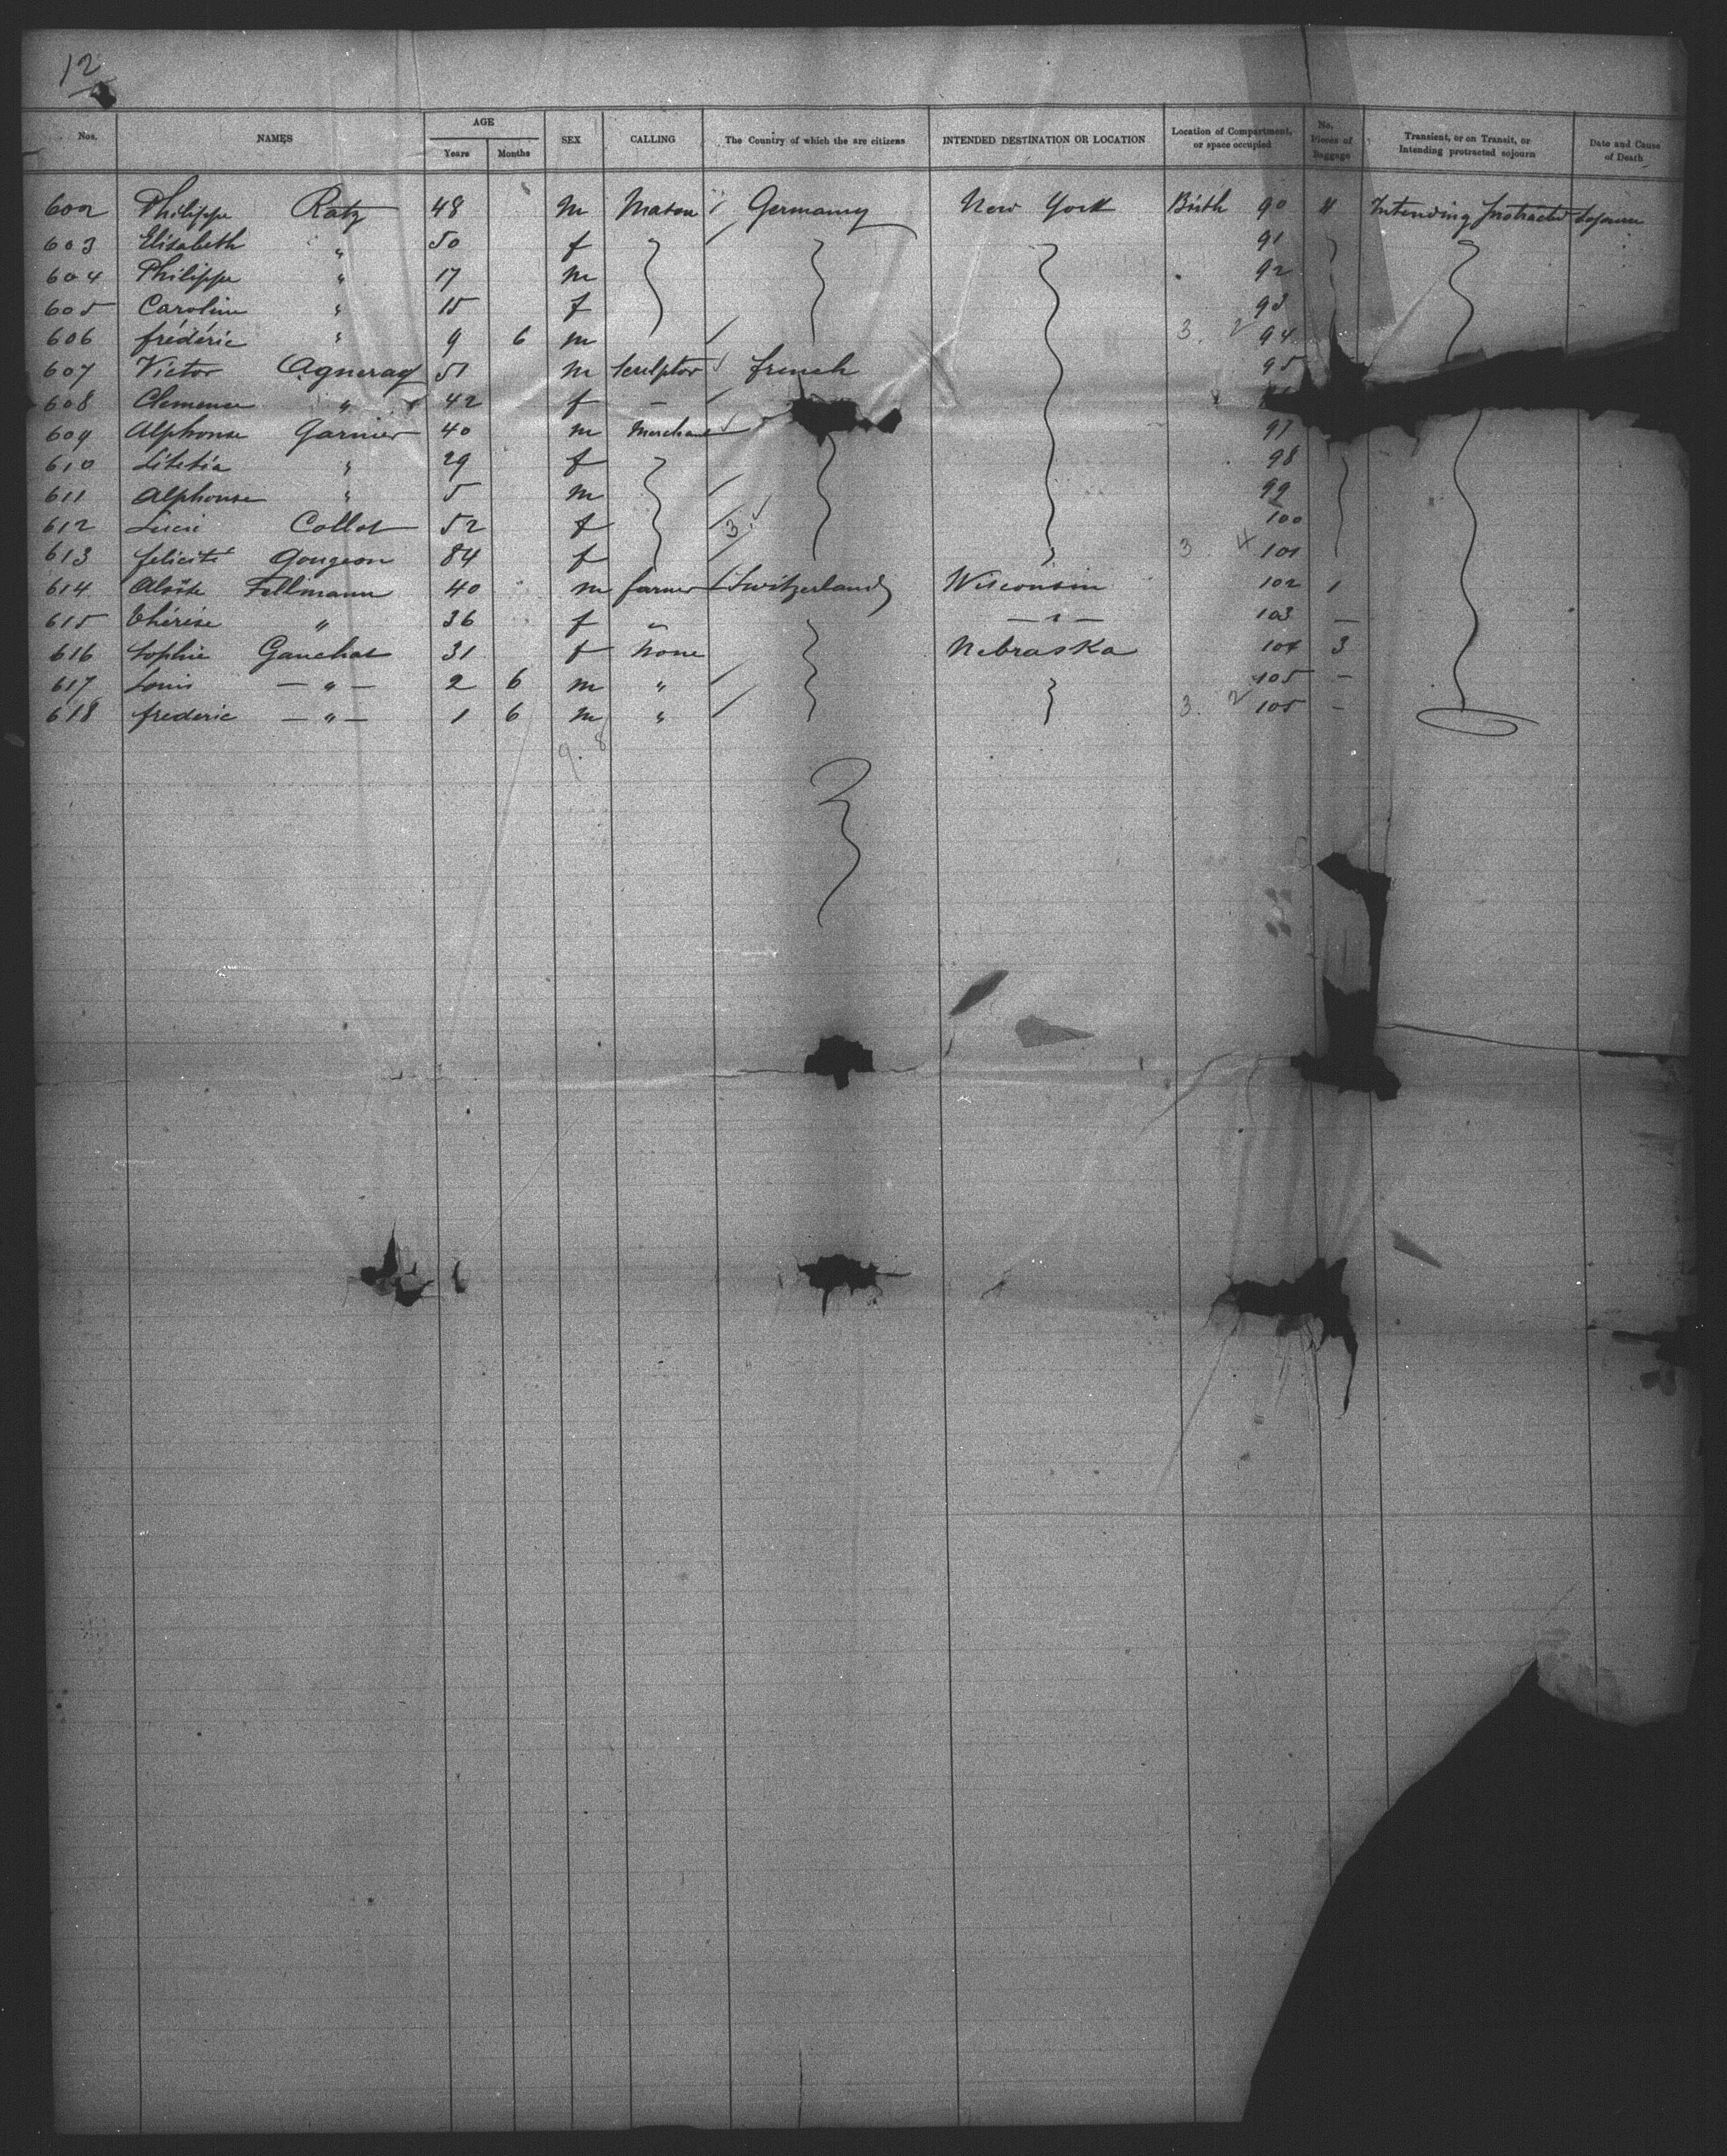 12
Nos. NAMES AGE Years Months SEX CALLING The Country of which the are citizens INTENDED DESTINATION OR LOCATION Location of Compartment, or space occupied No. Pieces of Baggage Transient, or on Transit, or Intending protracted sojourn Date and Cause of Death
602 Philippe Ratz 48 m Mason Germany New York Birth 90 4 Intending protracted sojourn
603 Elisabeth " 50 f 91
604 Philippe " 17 m 92
605 Caroline " 15 f 93
606 frédéric " 9 6 m 3. 2 94
607 Victor 51 m Sculptor french 95
608 Clemence " 42 f –
609 Alphonse Garnier 40 m Merchant 97
610 " 29 f 98
611 Alphonse " 5 m 99
612 Lucie Collot 52 f 3. 100
613 felicité Gougeon 84 f 3. 4 101
614 Fellmann 40 m farmer Switzerland Wisconsin 102 1
615 thérèse " 36 f " — " — 103 —
616 Sophie Gauchat 31 f None Nebraska 104 3
617 Louis — " — 2 6 m " 105 –
618 frederic — " — 1 6 m " 3. 2 105 –
9. 8